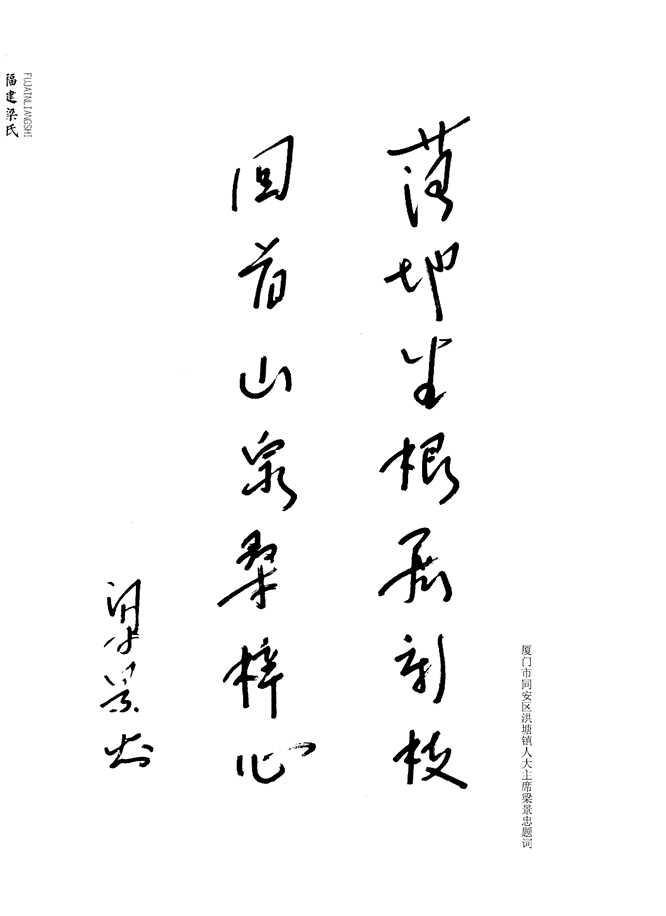 落地生根展新枝
回首山泉桑梓心
梁景忠
厦门市同安区洪塘镇人大主席梁景忠题词
FUJAINLIANGSHI
福建梁氏